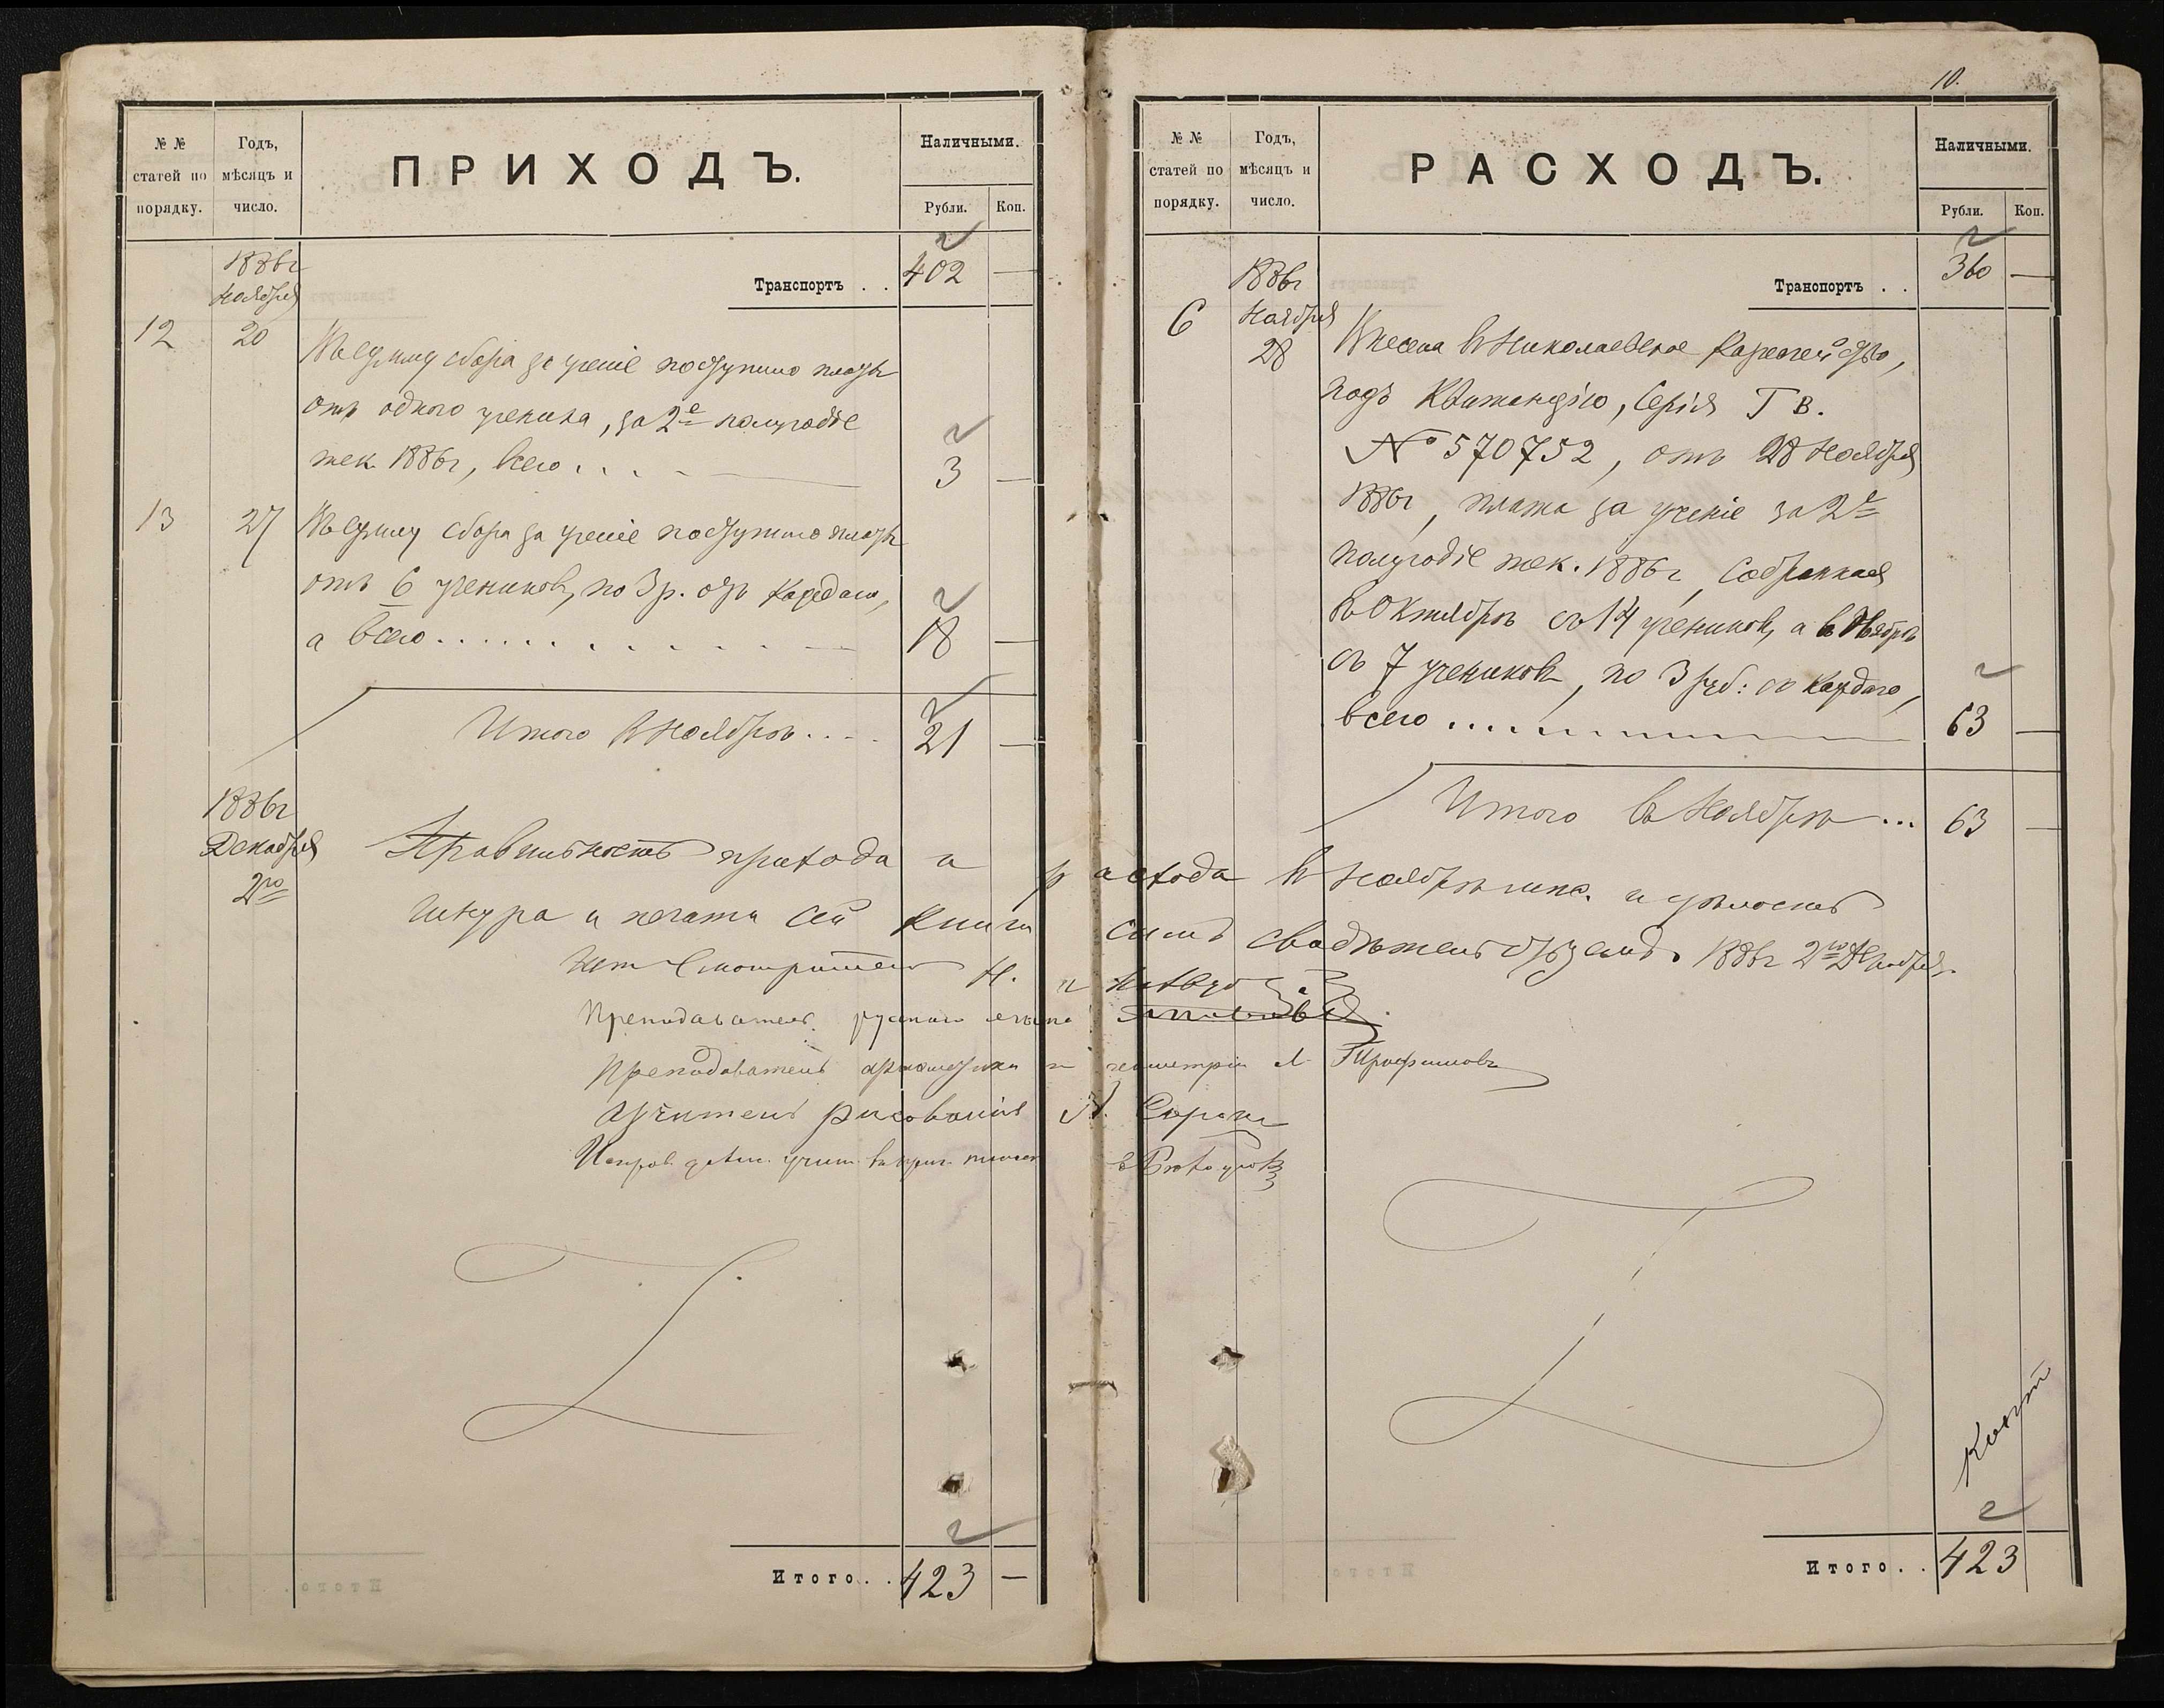 № №
статей по
порядку.
Годъ,
мѣсяцъ и
число.
ПРИХОДЪ.
Наличными.
Рубли.
Коп.
1886 г
Ноября
Транспортъ . . 402 —
12 20
сбора за ученіе поступило платы
отъ одного ученика, за 2е полугодіе
тек. 1886 г, всего . . . 3 —
13 27
сбора за ученіе поступило платы
отъ 6 учениковъ, по 3 р. отъ каждаго,
а всего . . . . . . . . . . 18 —
Итого в Ноябрѣ . . . 21 —
1886 г
Декабря
2го
Правильность прихода и расхода в Ноябрѣ и цѣлость
шнура и печати сей книги симъ свидѣтельствуемъ 1886 г 2го Декабря.
Шт. Смотритель Н.
Преподаватель русскаго языка
Преподаватель арифметики и геометріи Трофимовъ
Учитель рисованія
Итого . . 423 —
10.
№ №
статей по
порядку.
Годъ,
мѣсяцъ и
число.
РАСХОДЪ.
Наличными.
Рубли.
Коп.
Транспортъ . . 360 —
1886 г
6 Ноября
28
Внесена в Николаевское Казначейство,
подъ квитанцію, Серія Г В.
№ 570752, отъ 28 Ноября
1886 г, плата за ученіе за 2е
полугодіе тек. 1886 г, собранная
в Октябрѣ съ 14 учениковъ, а в Ноябрѣ
съ 7 учениковъ, по 3 руб: съ каждаго,
всего . . . . 63 —
Итого въ Ноябрѣ . . . 63 —
Итого . . 423